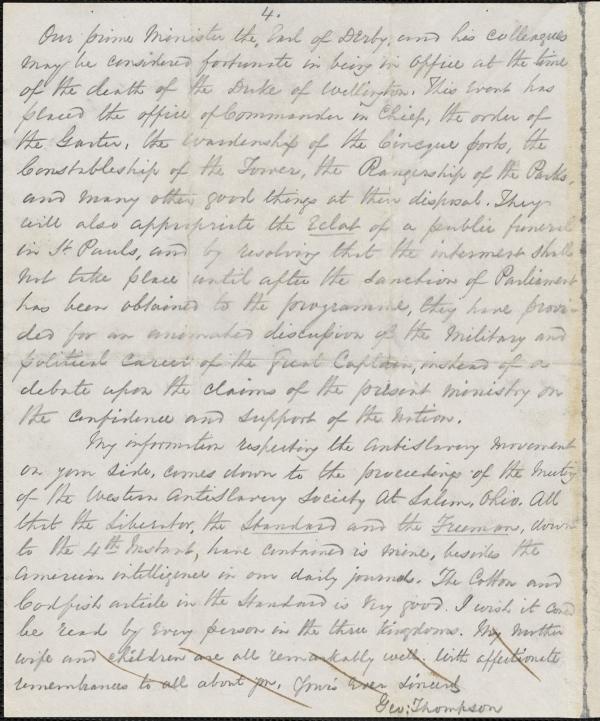 4.
Our prime Minister the, Earl of Derby, and his colleagues
may be considered fortunate in being in office at the time
of the death of the Duke of Wellington. This event has
placed the office of Commander in Chief, the order of
the Garter, the wardenship of the Cincque ports, the
Constableship of the Tower, the Rangership of the Parks,
and many other good things at their disposal. They
will also appropriate the eclat of a public funeral
in St Pauls, and by resolving that the interment shall
not take place until after the sanction of Parliament
has been obtained to the programme, they have provi-
ded for an animated discussion of the Military and
political career of the Great Captain, instead of a
debate upon the claims of the present ministry on
the confidence and support of the Nation.
My information respecting the antislavery movement
on your side, comes down to the proceedings of the Meeting
of the Western Antislavery Society at Salem, Ohio. All
that the Liberator, the Standard and the Freeman, down
to the 4th Instant, have contained is mine, besides the
American intelligence in our daily journals. The Cotton and
Codfish article in the Standard is very good. I wish it could
be read by every person in the three Kingdoms. My Mother
wife and children are all remarkably well. With affectionate
remembrances to all about you, Yours Ever Sincerely
Geo: Thompson